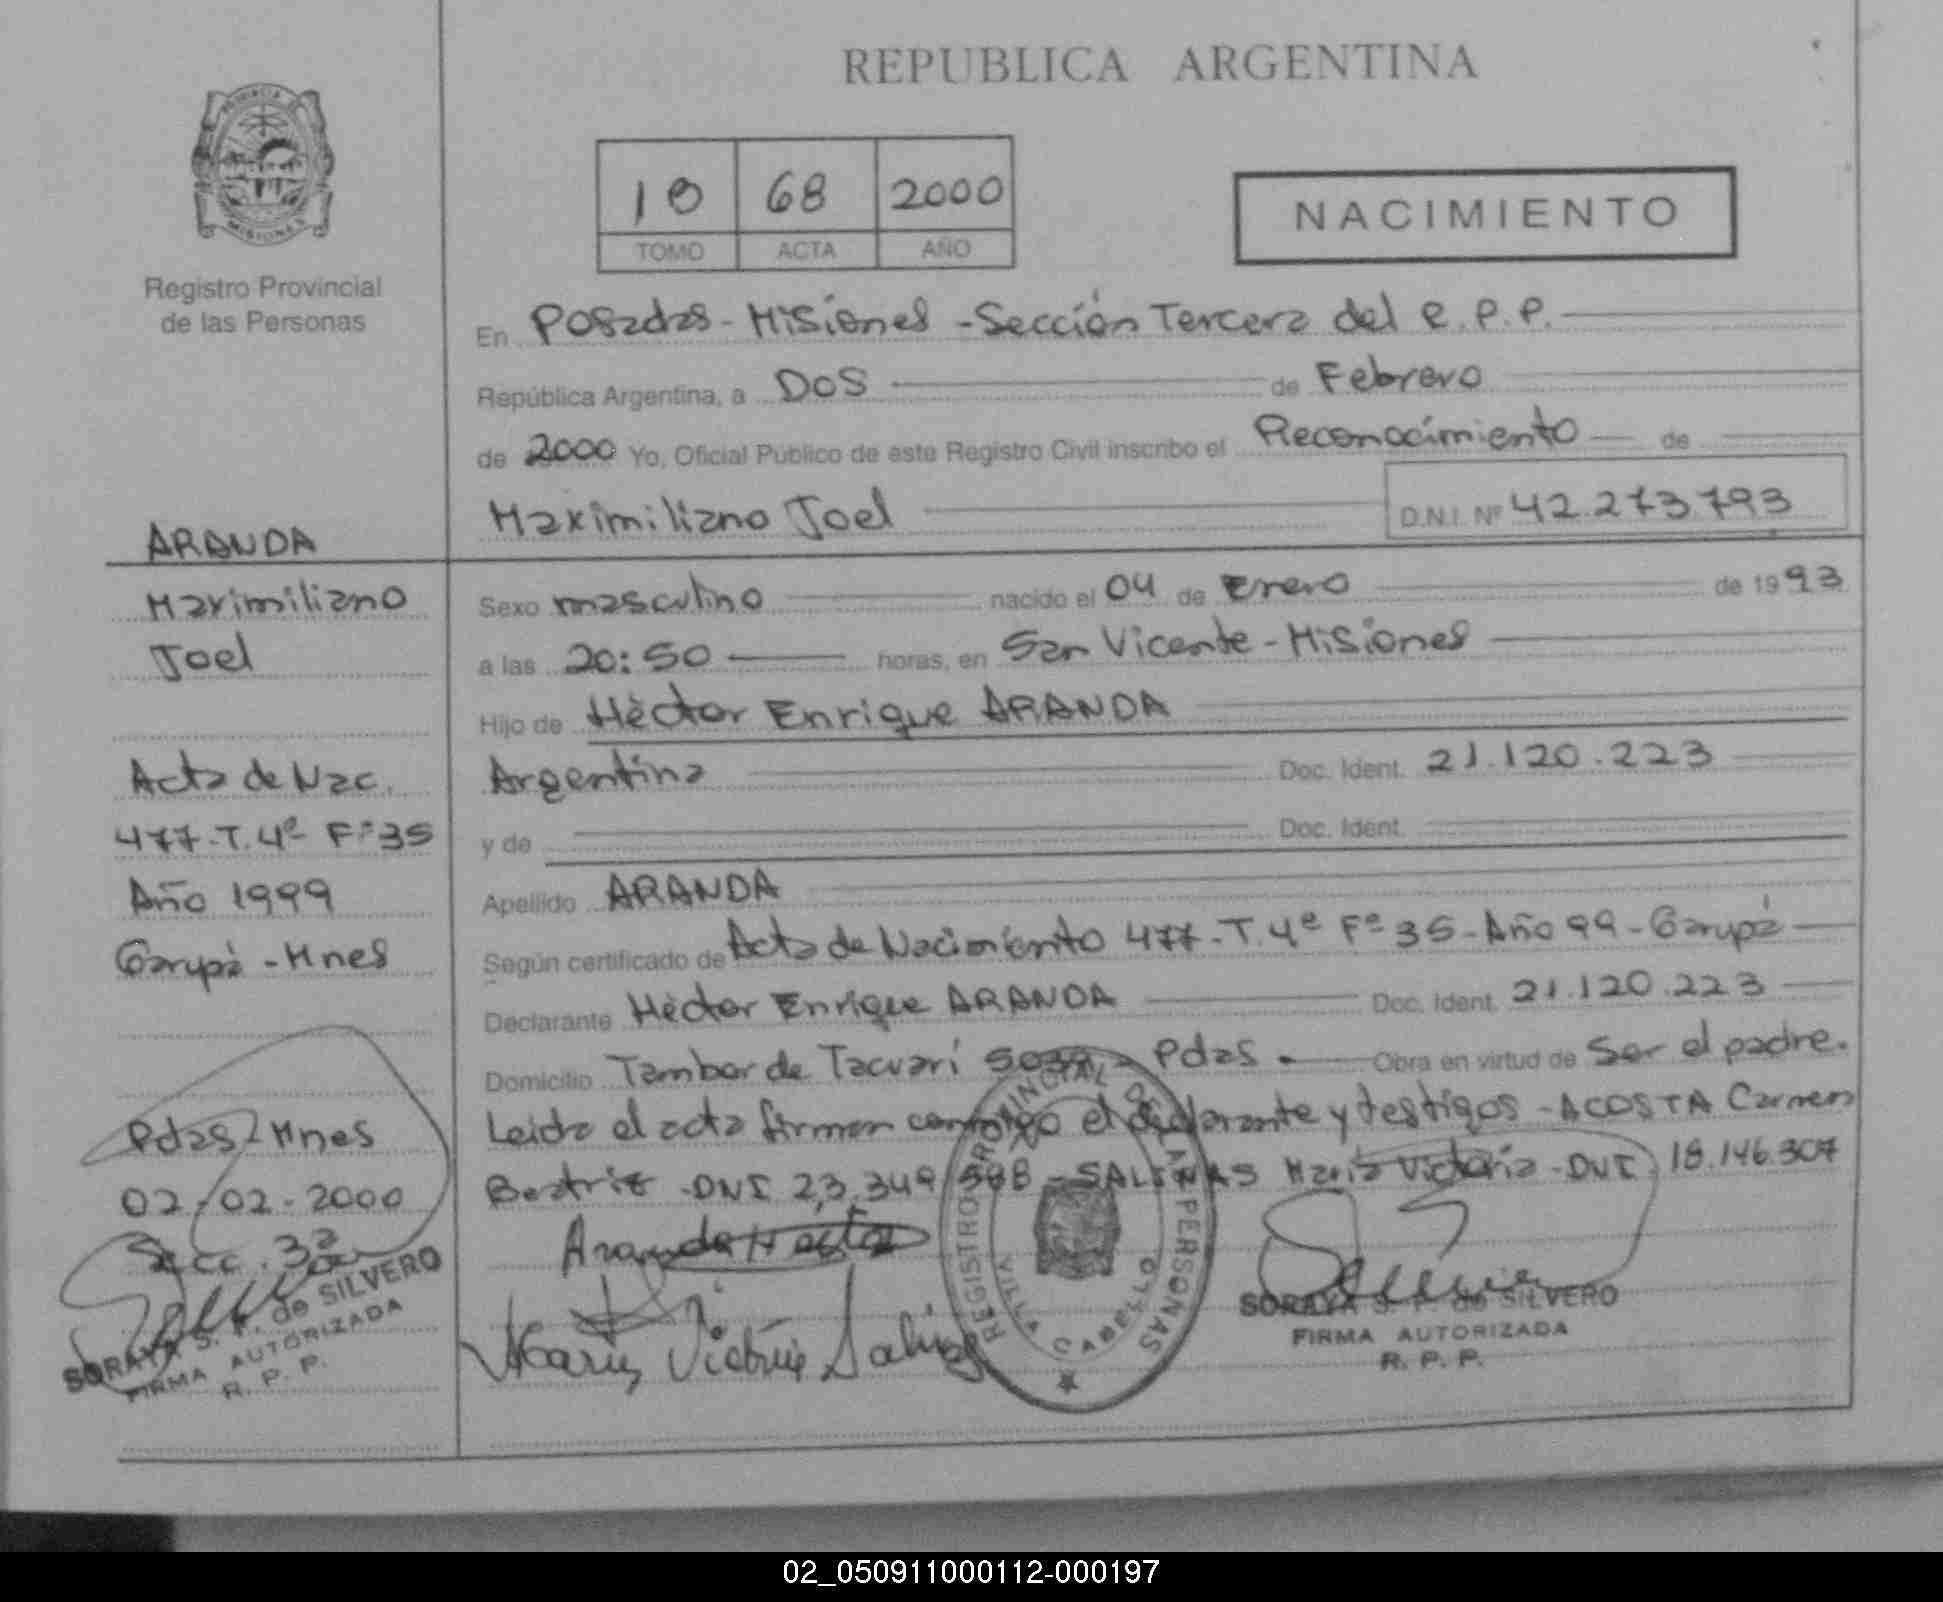 REPUBLICA ARGENTINA
PROVINCIA DE
MISIONES
Registro Provincial
de las Personas
10 68 2000
TOMO ACTA AÑO
NACIMIENTO
En Posadas - Misiones - Sección Tercera del R.P.P.
República Argentina, a DOS de Febrero
de 2000 Yo, Oficial Público de este Registro Civil inscribo el Reconocimiento de
Maximiliano Joel D.N.I. Nº 42.273.793
Sexo masculino nacido el 04 de Enero de 1993
a las 20:50 horas, en San Vicente - Misiones
Hijo de Hèctor Enrique ARANDA
Argentina Doc. Ident. 21.120.223
y de Doc. Ident.
Apellido ARANDA
Según certificado de Acta de Nacimiento 477-T.4º Fº 35 - Año 99 - Garupà
Declarante Hèctor Enrique ARANDA Doc. Ident. 21.120.223
Domicilio Tambor de Tacuarí Pdas. Obra en virtud de Ser el padre.
Leida el acta firman conmigo el declarante y testigos - ACOSTA Carmen
Beatriz - DNI 23.349 - SALINAS Maria Victoria - DNI 18.146.307
Aranda
Maria Victoria Salinas
REGISTRO PROVINCIAL DE LAS PERSONAS
VILLA CABELLO
SORAYA S. F. de SILVERO
FIRMA AUTORIZADA
R. P. P.
ARANDA
Maximiliano
Joel
Acta de Nac.
477-T.4º Fº 35
Año 1999
Garupà - Mnes
Pdas - Mnes
02-02-2000
Secc. 3ª
SORAYA S. F. de SILVERO
FIRMA AUTORIZADA
R. P. P.
02_050911000112-000197